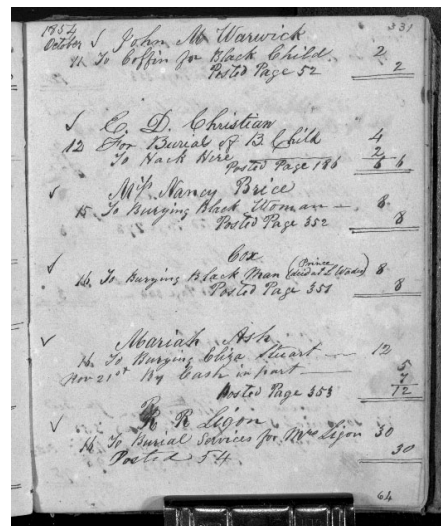 331
1854
October John M Warwick
11 To Coffin for Black Child 2
Posted Page 52 2
C. D. Christian
12 For Burial of B. Child 4
To Hack Here 2
Posted Page 186 6 6
Miss Nancy Brice
15 To Burying Black Woman — 8
Posted Page 352 8
Cox
16 To Burying Black Man (Prince 8
Posted Page 351 8
Mariah Ash
16 To Burying Eliza Stuart — 12
Nov 21st By Cash in part — 5
7
Posted Page 353 12
R R Ligon
16 To Burial Services for Mrs Ligon 30
Posted 54 30
64